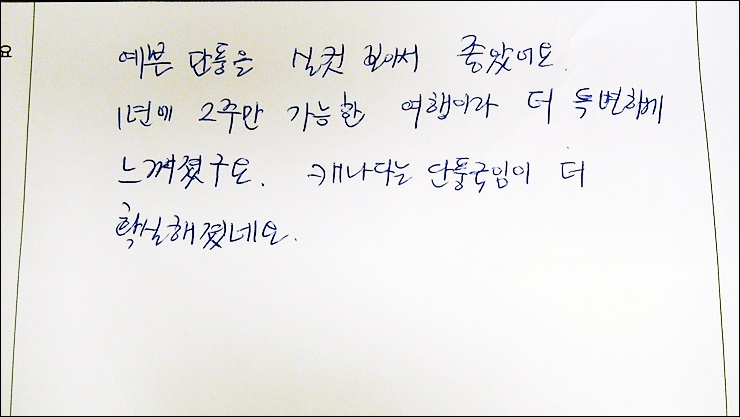 요
예쁜 단풍을 실컷 보아서 좋았어요.
1년에 2주만 가능한 여행이라 더 특별하게
느껴졌구요. 캐나다는 단풍국임이 더
확실해졌네요.